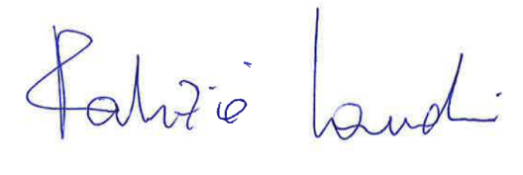 Fabrizio Landi